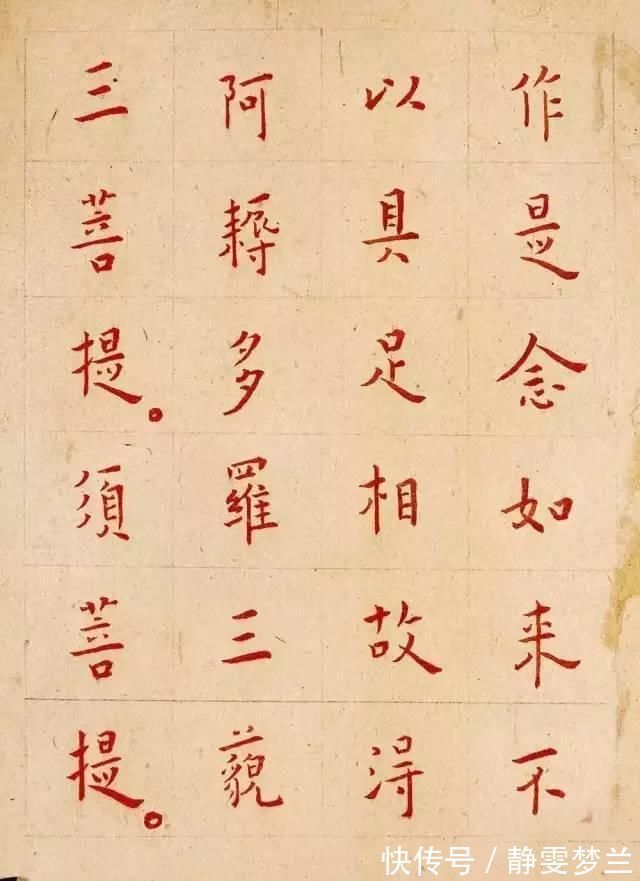 作是念如来不
以具足相故得
阿耨多羅三藐
三菩提。須菩提。
快传号/静雯梦兰